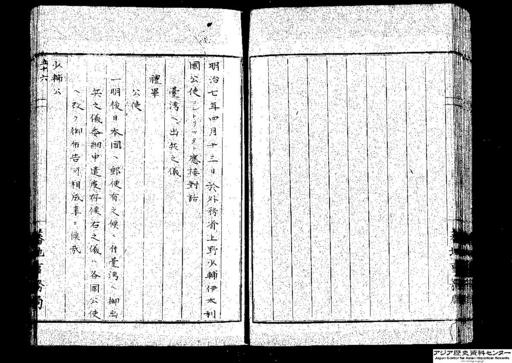 明治七年四月十三日於外務省上野少輔伊太利
國公使 應接對話
臺湾ヘ出兵之儀
禮畢
公使
一明後日本國ヘ郵便有之候ニ付臺湾ヘ御出
兵之儀委細申遣度存候右之儀ハ各國公使
ヘ改 御布告可相成 候哉
少輔公
五十六
アジア歴史資料センター
Japan Center for Asian Historical Records